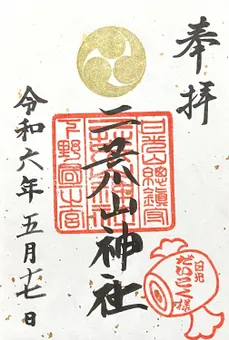 奉拝
二荒山神社
日光山總鎮守
下野國一宮
日光
だいこく様
令和六年五月十七日